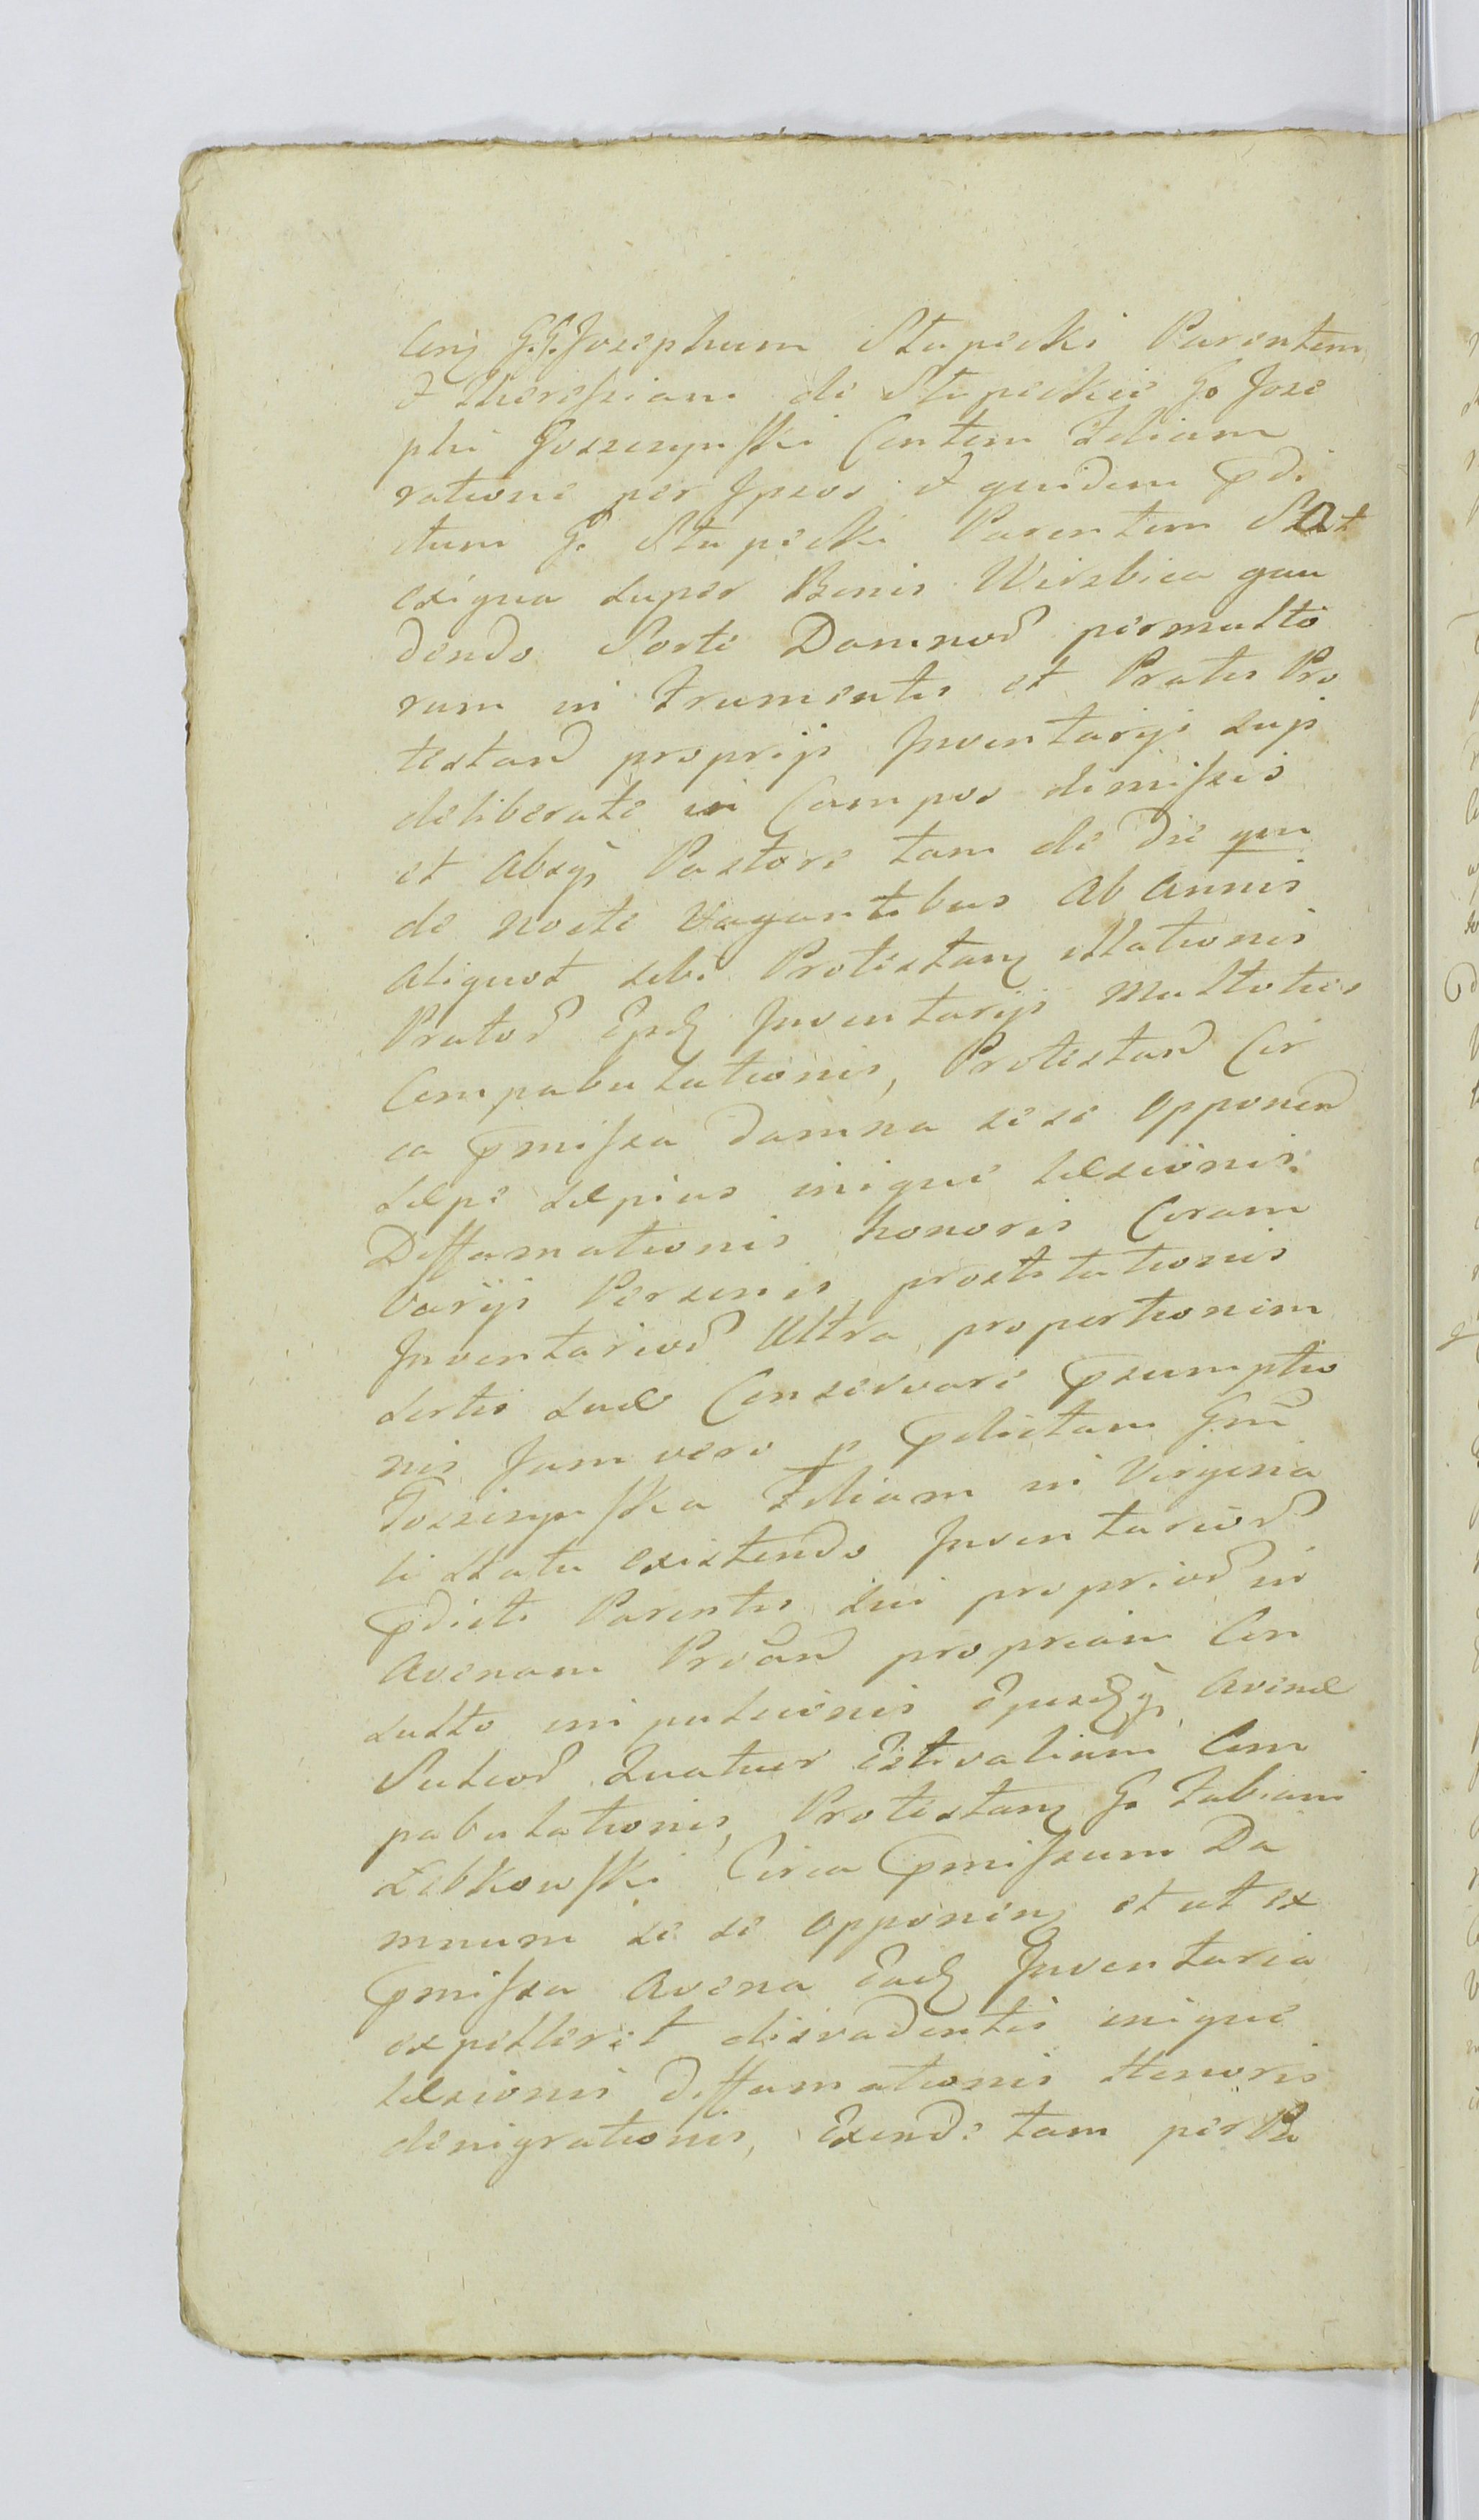 Conj G. G. Josephum Stupecki Parentem
& Theressiam de Stupeckie G. Jose
phi Goszczynski Contem Filiam
ratione per Ipsos & quidem Prædi
ctum G. Stupecki Parentem Sat
exigua super Bonis Wierzbica gau
dendo Sorte Damnor permulto
rum in Frumentis et Pratis Pro
testan proprijs Inventarijs suis
deliberate in Campos dimissis
et absq Pastore tam de die qm
de nocte Vagantibus ab annis
aliquot sibi Protestanti illationis
Prator Ejsd Inventarijs Multoties
Compabulationis, Protestan Cir
ca præmissa damna sese opponen
sæpe sæpius inique læsionis
Diffamationis honoris Coram
varijs Personis prostitutionis
Inventarior Ultra proportionem
sortis suæ Conservari præsumptio
nis Jam vero p prædictam Gm
Goszczynska Filiam in Virgina
li statu existendo Inventarior
prædicti Parentis sui proprior in
Avenam Protan propriam Con
sulto impulsionis Ejusdq Avenæ
Sulcor Quatuor Estivalium Com
pabulationis, Protestan G. Fabiani
Lebkowski Circa præmissum Da
mnum se se opponen et ut ex
præmissa avena Eadem Inventaria
expelleret disvadentis inique
læsionis diffamationis Honoris
denigrationis, Exinde tam per Pa